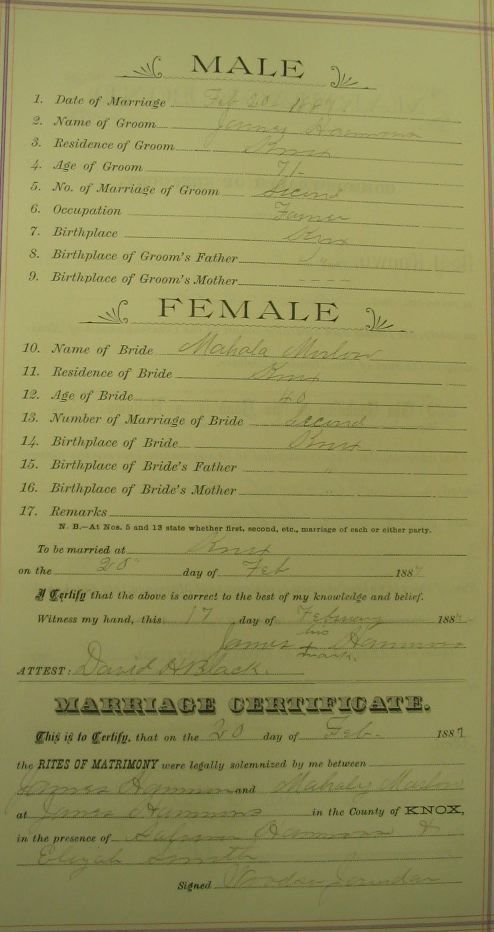 MALE
1. Date of Marriage Feb 20 1887
2. Name of Groom James Hammons
3. Residence of Groom Knox
4. Age of Groom 71
5. No. of Marriage of Groom Second
6. Occupation Farmer
7. Birthplace Knox
8. Birthplace of Groom's Father "
9. Birthplace of Groom's Mother
FEMALE
10. Name of Bride Mahala Marlow
11. Residence of Bride Knox
12. Age of Bride 40
13. Number of Marriage of Bride Second
14. Birthplace of Bride Knox
15. Birthplace of Bride's Father "
16. Birthplace of Bride's Mother "
17. Remarks
N. B.—At Nos. 5 and 13 state whether first, second, etc., marriage of each or either party.
To be married at Knox
on the 20 day of Feb 1887
I Certify that the above is correct to the best of my knowledge and belief.
Witness my hand, this 17 day of February 1887
his
James x Hammons
mark
ATTEST: David H Black.
MARRIAGE CERTIFICATE.
This is to Certify, that on the 20 day of Feb- 1887
the RITES OF MATRIMONY were legally solemnized by me between
James Hammons and Mahaly Marlow
at James Hammons in the County of KNOX,
in the presence of Hammons &
Elizah Smith
Signed